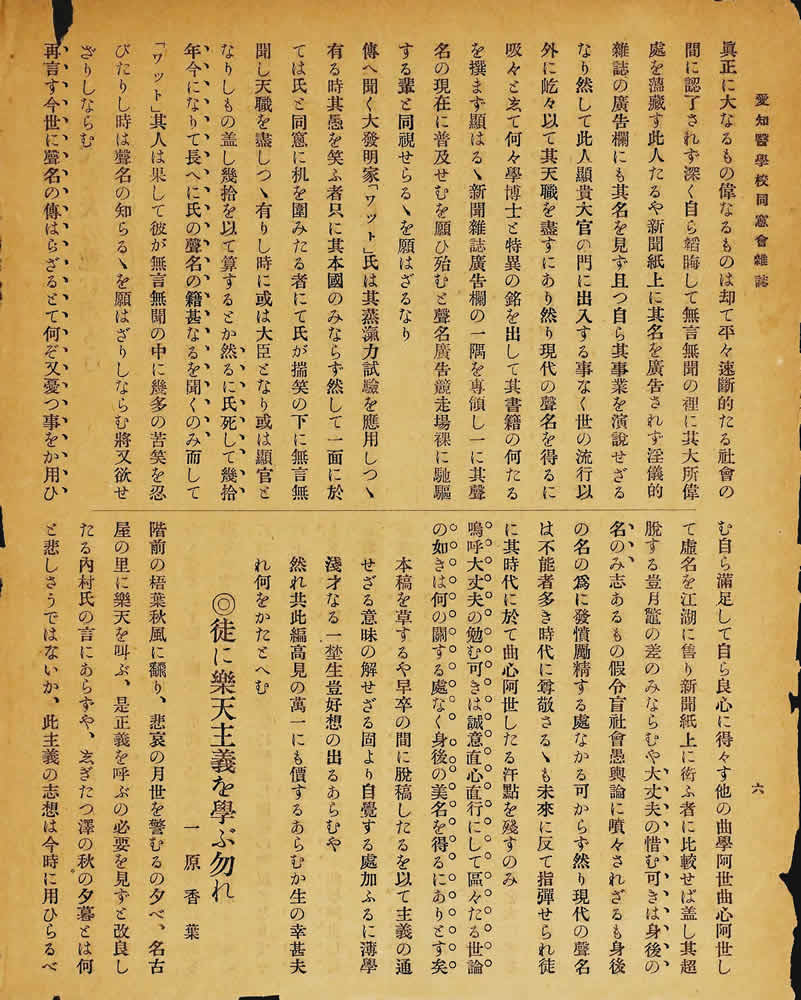 愛知醫學校同窓會雜誌
眞正に大なるもの偉なるものは却て平々速斷的たる社會の
間に認了されず深く自ら韜晦して無言無聞の裡に其大所偉
處を蕩藏す此人たるや新聞紙上に其名を廣告されず淫儀的
雜誌の廣告欄にも其名を見ず且つ自ら其事業を演說せざる
なり然して此人顯貴大官の門に出入する事なく世の流行以
外に屹々以て其天職を盡すにあり然り現代の聲名を得るに
吸々と𛁈て何々學博士と特異の銘を出して其書籍の何たる
を撰ます顯はるヽ新聞雜誌廣告欄の一隅を專領し一に其聲
名の現在に普及せむを願ひ殆むと聲名廣告競走場裸に馳驅
する輩と同視せらるヽを願はざるなり
傳へ聞く大發明家「ワット」氏は其蒸滊力試驗を應用しつヽ
有る時其愚を笑ふ者只に其本國のみならず然して一面に於
ては氏と同窓に机を圍みたる者にて氏が揣笑の下に無言無
聞し天職を盡しつヽ有りし時に或は大臣となり或は顯官と
なりしもの盖し幾拾を以て算するとか然るに氏死して幾拾
年今になりて長へに氏の聲名の籍甚なるを聞くのみ而して
「ワット」其人は果して彼が無言無聞の中に幾多の苦笑を忍
びたりし時は聲名の知らるヽを願はざりしならむ將又欲せ
ざりしならむ
再言す今世に聲名の傳はらざるとて何ぞ又憂つ事をか用ひ
六
む自ら滿足して自ら良心に得々す他の曲學阿世曲心阿世し
て虛名を江湖に售り新聞紙上に衒ふ者に比較せば盖し其超
脫する豈月鼈の差のみならむや大丈夫の惜む可きは身後の
名のみ志あるもの假令盲社會愚輿論に嘖々されざるも身後
の名の爲に發憤勵精する處なかる可からず然り現代の聲名
は不能者多き時代に尊敬さるヽも未來に反て指彈せられ徒
に其時代に於て曲心阿世したる汗點を殘すのみ
嗚呼大丈夫の勉む可きは誠意直心直行にして區々たる世論
の如きは何の關する處なく身後の美名を得るにありとす矣
本稿を草するや早卒の間に脫稿したるを以て主義の通
せざる意味の解せざる固より自覺する處加ふるに薄學
淺才なる一埜生豈好想の出るあらむや
然れ共此編高見の萬一にも價するあらむか生の幸甚夫
れ何をかたとへむ
◎徒に樂天主義を學ぶ勿れ
一原香葉
階前の梧葉秋風に飜り、悲哀の月世を警むるの夕べ、名古
屋の里に樂天を叫ぶ、是正義を呼ぶの必要を見ずと改良し
たる內村氏の言にあらずや、𛁈ぎたつ澤の秋の夕暮とは何
と悲しさうではないか、此主義の志想は今時に用ひらるべ